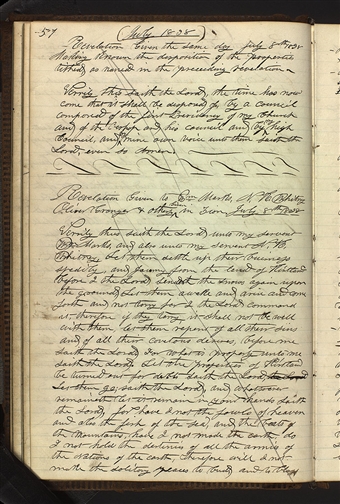 57
(July 1838)
Revelation Given the same day July 8th 1838
Making known the disposition of the properties
tithed, as named in the preceeding revelation—
Verily thus saith the Lord, the time has now
come that it shall be disposed of, by a council
composed of the first Presidency of my Church
and of the Bishop and his council and by my high
Council, and mine own voice unto them saith the
Lord, even so Amen.
Revelation Given to Wm Marks, N. K. Whitney
Oliver Granger & others in Zion July 8th 1838
Verily thus saith the Lord unto my servent
Wm Marks, and also unto my servent N. K.
Whitney Let them settle up their buisness
spedily, and journy from the land of Kirtland
before I the Lord sendeth the snows again upon
the ground, Let them awake and arise and come
forth and not tarry for I the Lord command
it, therefore if they tarry, it shall not be well
with them, let them repent of all their sins
and of all their covetous desires, before me
saith the Lord, For what is property unto me
saith the Lord. Let the properties of Kirtland
be turned out for debts saith the Lord,
Let them go, saith the Lord, and whatsoever
remaineth let it remain in your hands saith
the Lord, for have I not the fowls of heaven
and also the fish of the sea, and the beasts of
the mountains, have I not made the earth, do
I not hold the destinies of all the armies of
the Nations of the earth, therefore will I not
make the solitary places to bud, and to blos